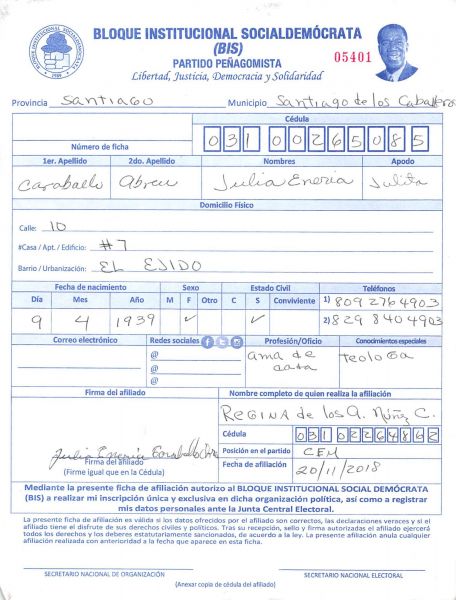 BLOQUE INSTITUCIONAL SOCIALDEMÓCRATA
(BIS)
PARTIDO PEÑAGOMISTA
Libertad, Justicia, Democracia y Solidaridad
05401
Provincia Santiago Municipio Santiago de los Caballeros
Cédula
Número de ficha 031 0026508 5
1er. Apellido 2do. Apellido Nombres Apodo
Caraballo Abreu Julia Eneria Julita
Domicilio Físico
Calle: 10
#Casa / Apt. / Edificio: #7
Barrio / Urbanización: EL EJIDO
Fecha de nacimiento Sexo Estado Civil Teléfonos
Día Mes Año M F Otro C S Conviviente 1) 809 276 4903
9 4 1939 ✓ ✓ 2) 829 840 4903
Correo electrónico Redes sociales Profesión/Oficio Conocimientos especiales
@ ama de casa Teologa
@
@
Firma del afiliado Nombre completo de quien realiza la afiliación
REGINA de los A. Núñez C.
Cédula 031 0226486 2
Julia Eneria Caraballo
Firma del afiliado
(Firme igual que en la Cédula)
Posición en el partido CEM
Fecha de afiliación 20/11/2018
Mediante la presente ficha de afiliación autorizo al BLOQUE INSTITUCIONAL SOCIAL DEMÓCRATA
(BIS) a realizar mi inscripción única y exclusiva en dicha organización política, así como a registrar
mis datos personales ante la Junta Central Electoral.
La presente ficha de afiliación es válida si los datos ofrecidos por el afiliado son correctos, las declaraciones veraces y si el
afiliado tiene el disfrute de sus derechos civiles y políticos. Tras su recepción, sello y firma autorizadas el afiliado ejercerá
todos los derechos y los deberes estatutariamente sancionados, de acuerdo a la ley. La presente afiliación anula cualquier
afiliación realizada con anterioridad a la fecha que aparece en esta ficha.
SECRETARIO NACIONAL DE ORGANIZACIÓN SECRETARIO NACIONAL ELECTORAL
(Anexar copia de cédula del afiliado)